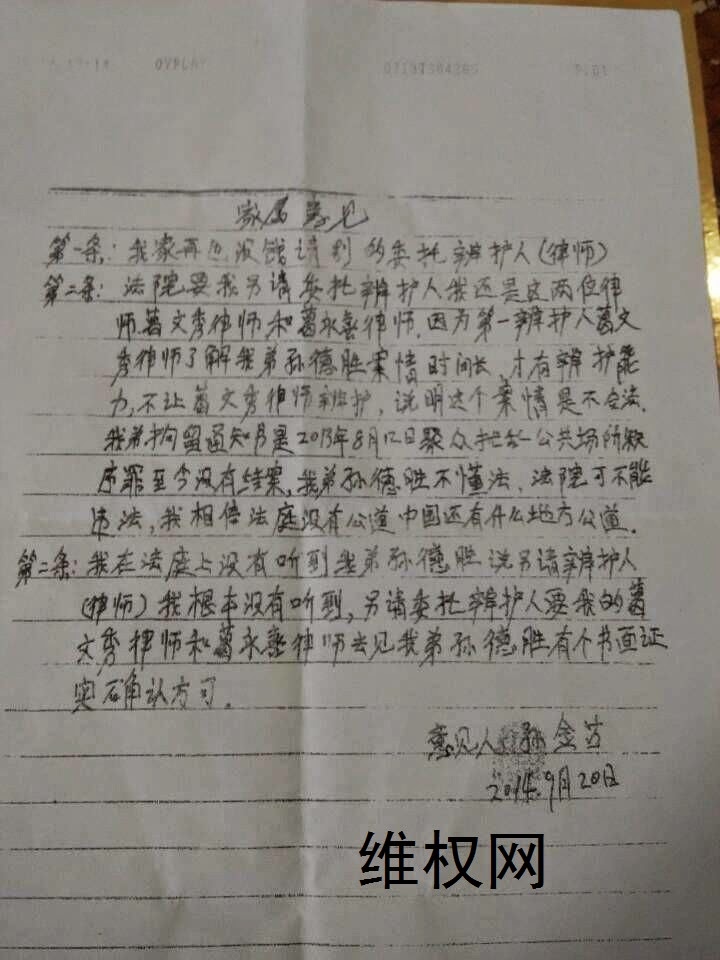 OVPLAY
家属意见
第一条：我家再也没钱请别的委托辨护人(律师)
第二条：法院要我另请委托辨护人我还是这两位律
师葛文秀律师和葛永喜律师，因为第一辨护人葛文
秀律师了解我弟孙德胜案情时间长，才有辨护能
力，不让葛文秀律师辨护，说明这个案情是不合法，
我弟拘留通知书是2013年8月12日聚众扰乱公共场所秩
序罪至今没有结案，我弟孙德胜不懂法，法院可不能
违法，我相信法庭没有公道中国还有什么地方公道。
第二条：我在法庭上没有听到我弟孙德胜说另请辨护人
(律师)我根本没有听到，另请委托辨护人要我的葛
文秀律师和葛永喜律师去见我弟孙德胜有个书面证
实确认方可。
意见人：孙金
2014.9月20日
维权网